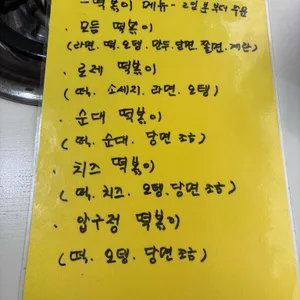 -떡볶이 메뉴- 2인분부터 주문
· 모듬 떡볶이
(라면. 떡. 오뎅. 만두. 당면. 쫄면. 계란)
· 로제 떡볶이
(떡. 소세지. 라면. 오뎅)
· 순대 떡볶이
(떡. 순대. 당면 조금)
· 치즈 떡볶이
(떡. 치즈. 오뎅. 당면 조금)
· 압구정 떡볶이
(떡. 오뎅. 당면 조금)